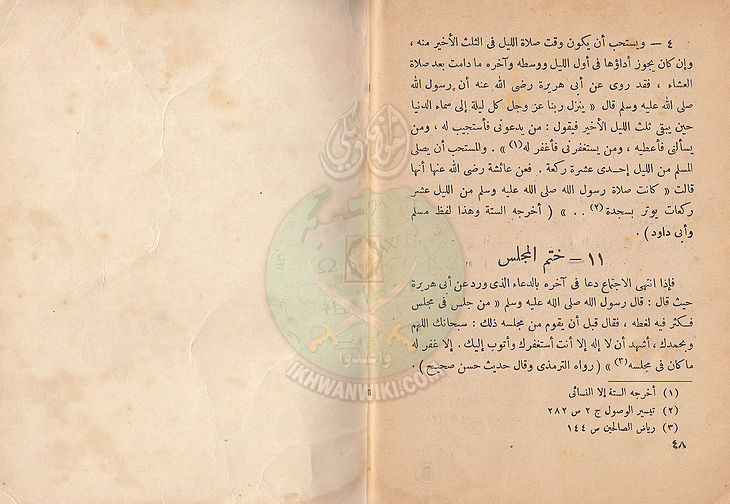 ٤ – ويستحب أن يكون وقت صلاة الليل فى الثلث الأخير منه ،
وإن كان يجوز أداؤها فى أول الليل ووسطه وآخره ما دامت بعد صلاة
العشاء ، فقد روى عن أبى هريرة رضى الله عنه أن رسول الله
صلى الله عليه وسلم قال « ينزل ربنا عز وجل كل ليلة إلى سماء الدنيا
حين يبقى ثلث الليل الأخير فيقول : من يدعونى فأستجيب له ، ومن
يسألنى فأعطيه ، ومن يستغفرنى فأغفر له (١) » . والمستحب أن يصلى
المسلم من الليل إحدى عشرة ركعة . فعن عائشة رضى الله عنها أنها
قالت « كانت صلاة رسول الله صلى الله عليه وسلم من الليل عشر
ركعات يوتر بسجدة (٢) . . » ( أخرجه الستة وهذا لفظ مسلم
وأبى داود ) .
١١ – ختم المجلس
فإذا انتهى الاجتماع دعا فى آخره بالدعاء الذى ورد عن أبى هريرة
حيث قال : قال رسول الله صلى الله عليه وسلم « من جلس فى مجلس
فكثر فيه لغطه ، فقال قبل أن يقوم من مجلسه ذلك : سبحانك اللهم
وبحمدك ، أشهد أن لا إله إلا أنت أستغفرك وأتوب إليك . إلا غفر له
ما كان فى مجلسه (٣) » ( رواه الترمذى وقال حديث حسن صحيح ) .
(١) أخرجه الستة إلا النسائى
(٢) تيسير الوصول ج ٢ س ٢٨٢
(٣) رياض الصالحين س ١٤٤
٤٨
وأعدوا
IKHWANWIKI.COM